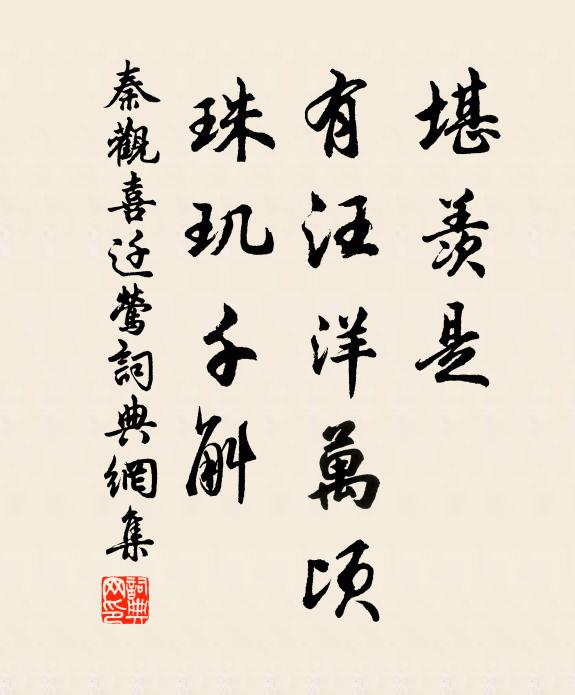 堪羨是
有汪洋萬頃
珠玑千斛
秦觀喜迁鶯詞典網集
詞典網印